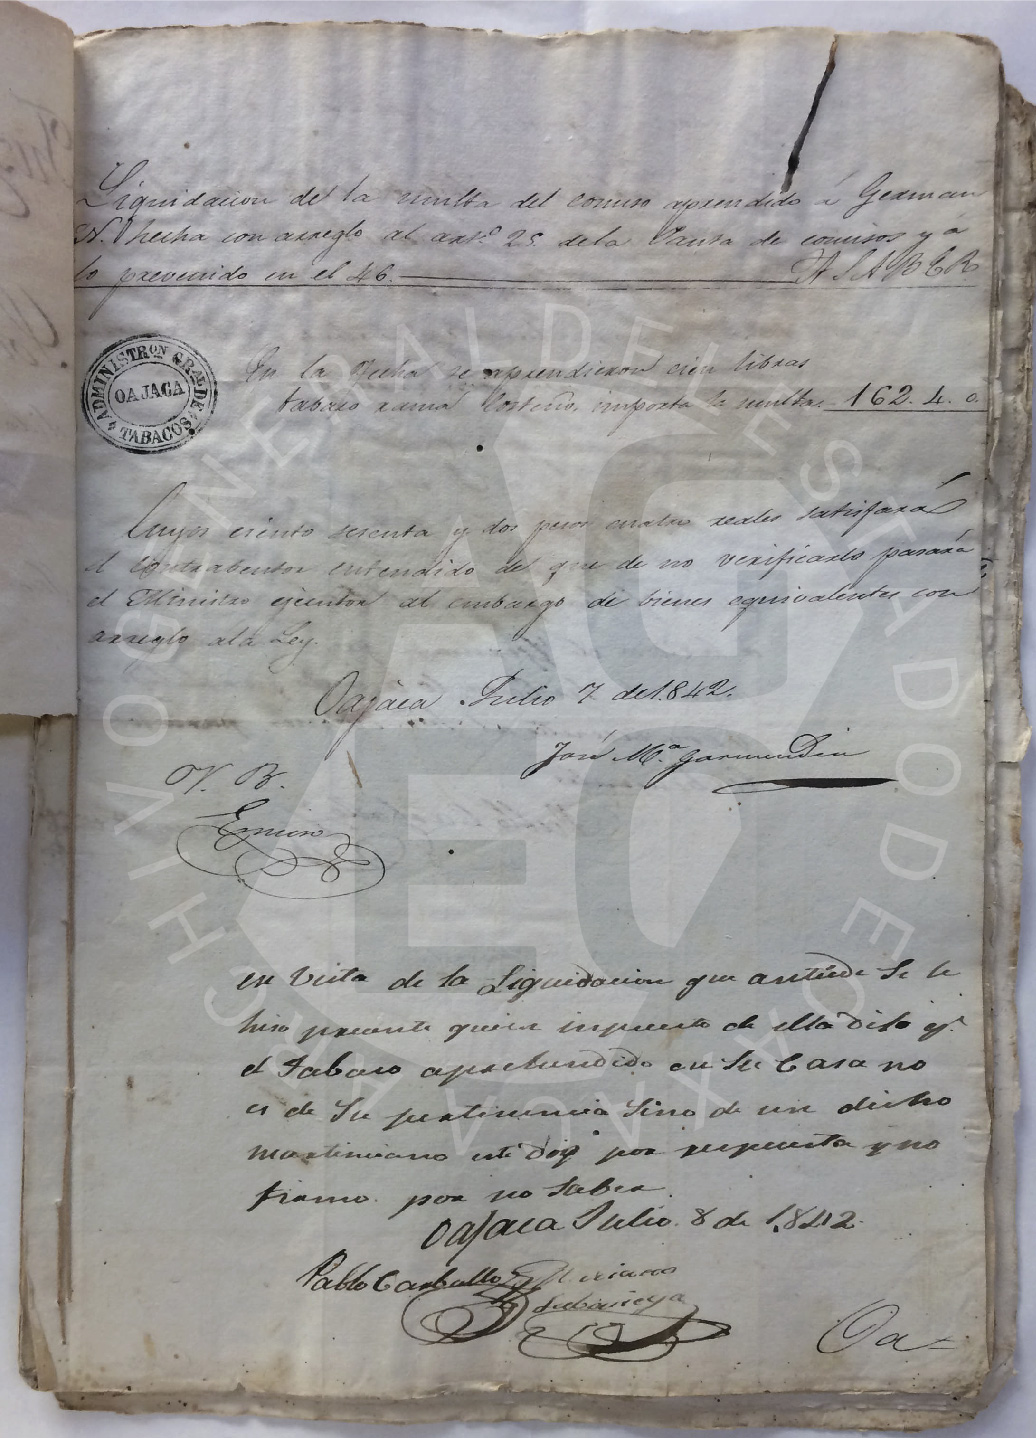 Liquidacion de la multa del comiso aprendido á German
N. hecha con arreglo al art.º 25 de la Pauta de comisos y á
lo prevenido en el 46. A SABER
ADMINISTRON GRAL DE TABACOS
OAJACA
En la fecha se aprendieron cien libras
tabaco rama Costeño, importa la multa. 162. 4. 0.
Cuyos ciento sesenta y dos pesos cuatro reales satisfará
el Contraventor entendido de que de no verificarlo pasará
el Ministro ejecutor al embargo de bienes equivalentes con
arreglo alá Ley.
Oajaca Julio 7 de 1842.
José M.ª Garmendia
V. B.
en Vista de la Liquidacion que antecede Se le
hiso precente quien inpuesto de ella Dijo q.e
el Tabaco aprehendido en Su Casa no
es de Su pertenencia Sino de un dicho
Martiniano esto Dijo por respuesta y no
firmo por no Saber.
Oajaca Julio 8 de 1842.
Pablo Carballo
Oa=
ARCHIVO GENERAL DEL ESTADO DE OAXACA
AGEO